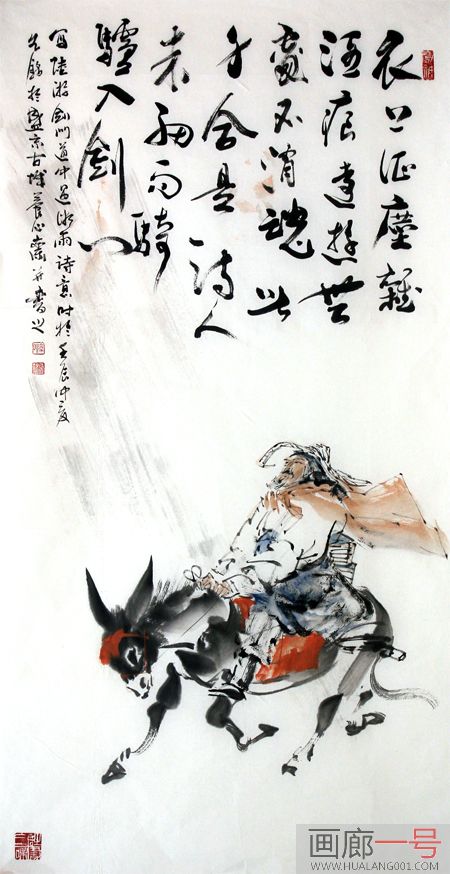 衣上征塵雜
酒痕遠遊無
處不消魂此
身合是詩人
未細雨騎
驢入劍門
寫陸游劍門道中遇微雨詩意時於壬辰仲夏
於盛京古城養心齋并書之
画廊一号
WWW.HUALANG001.COM